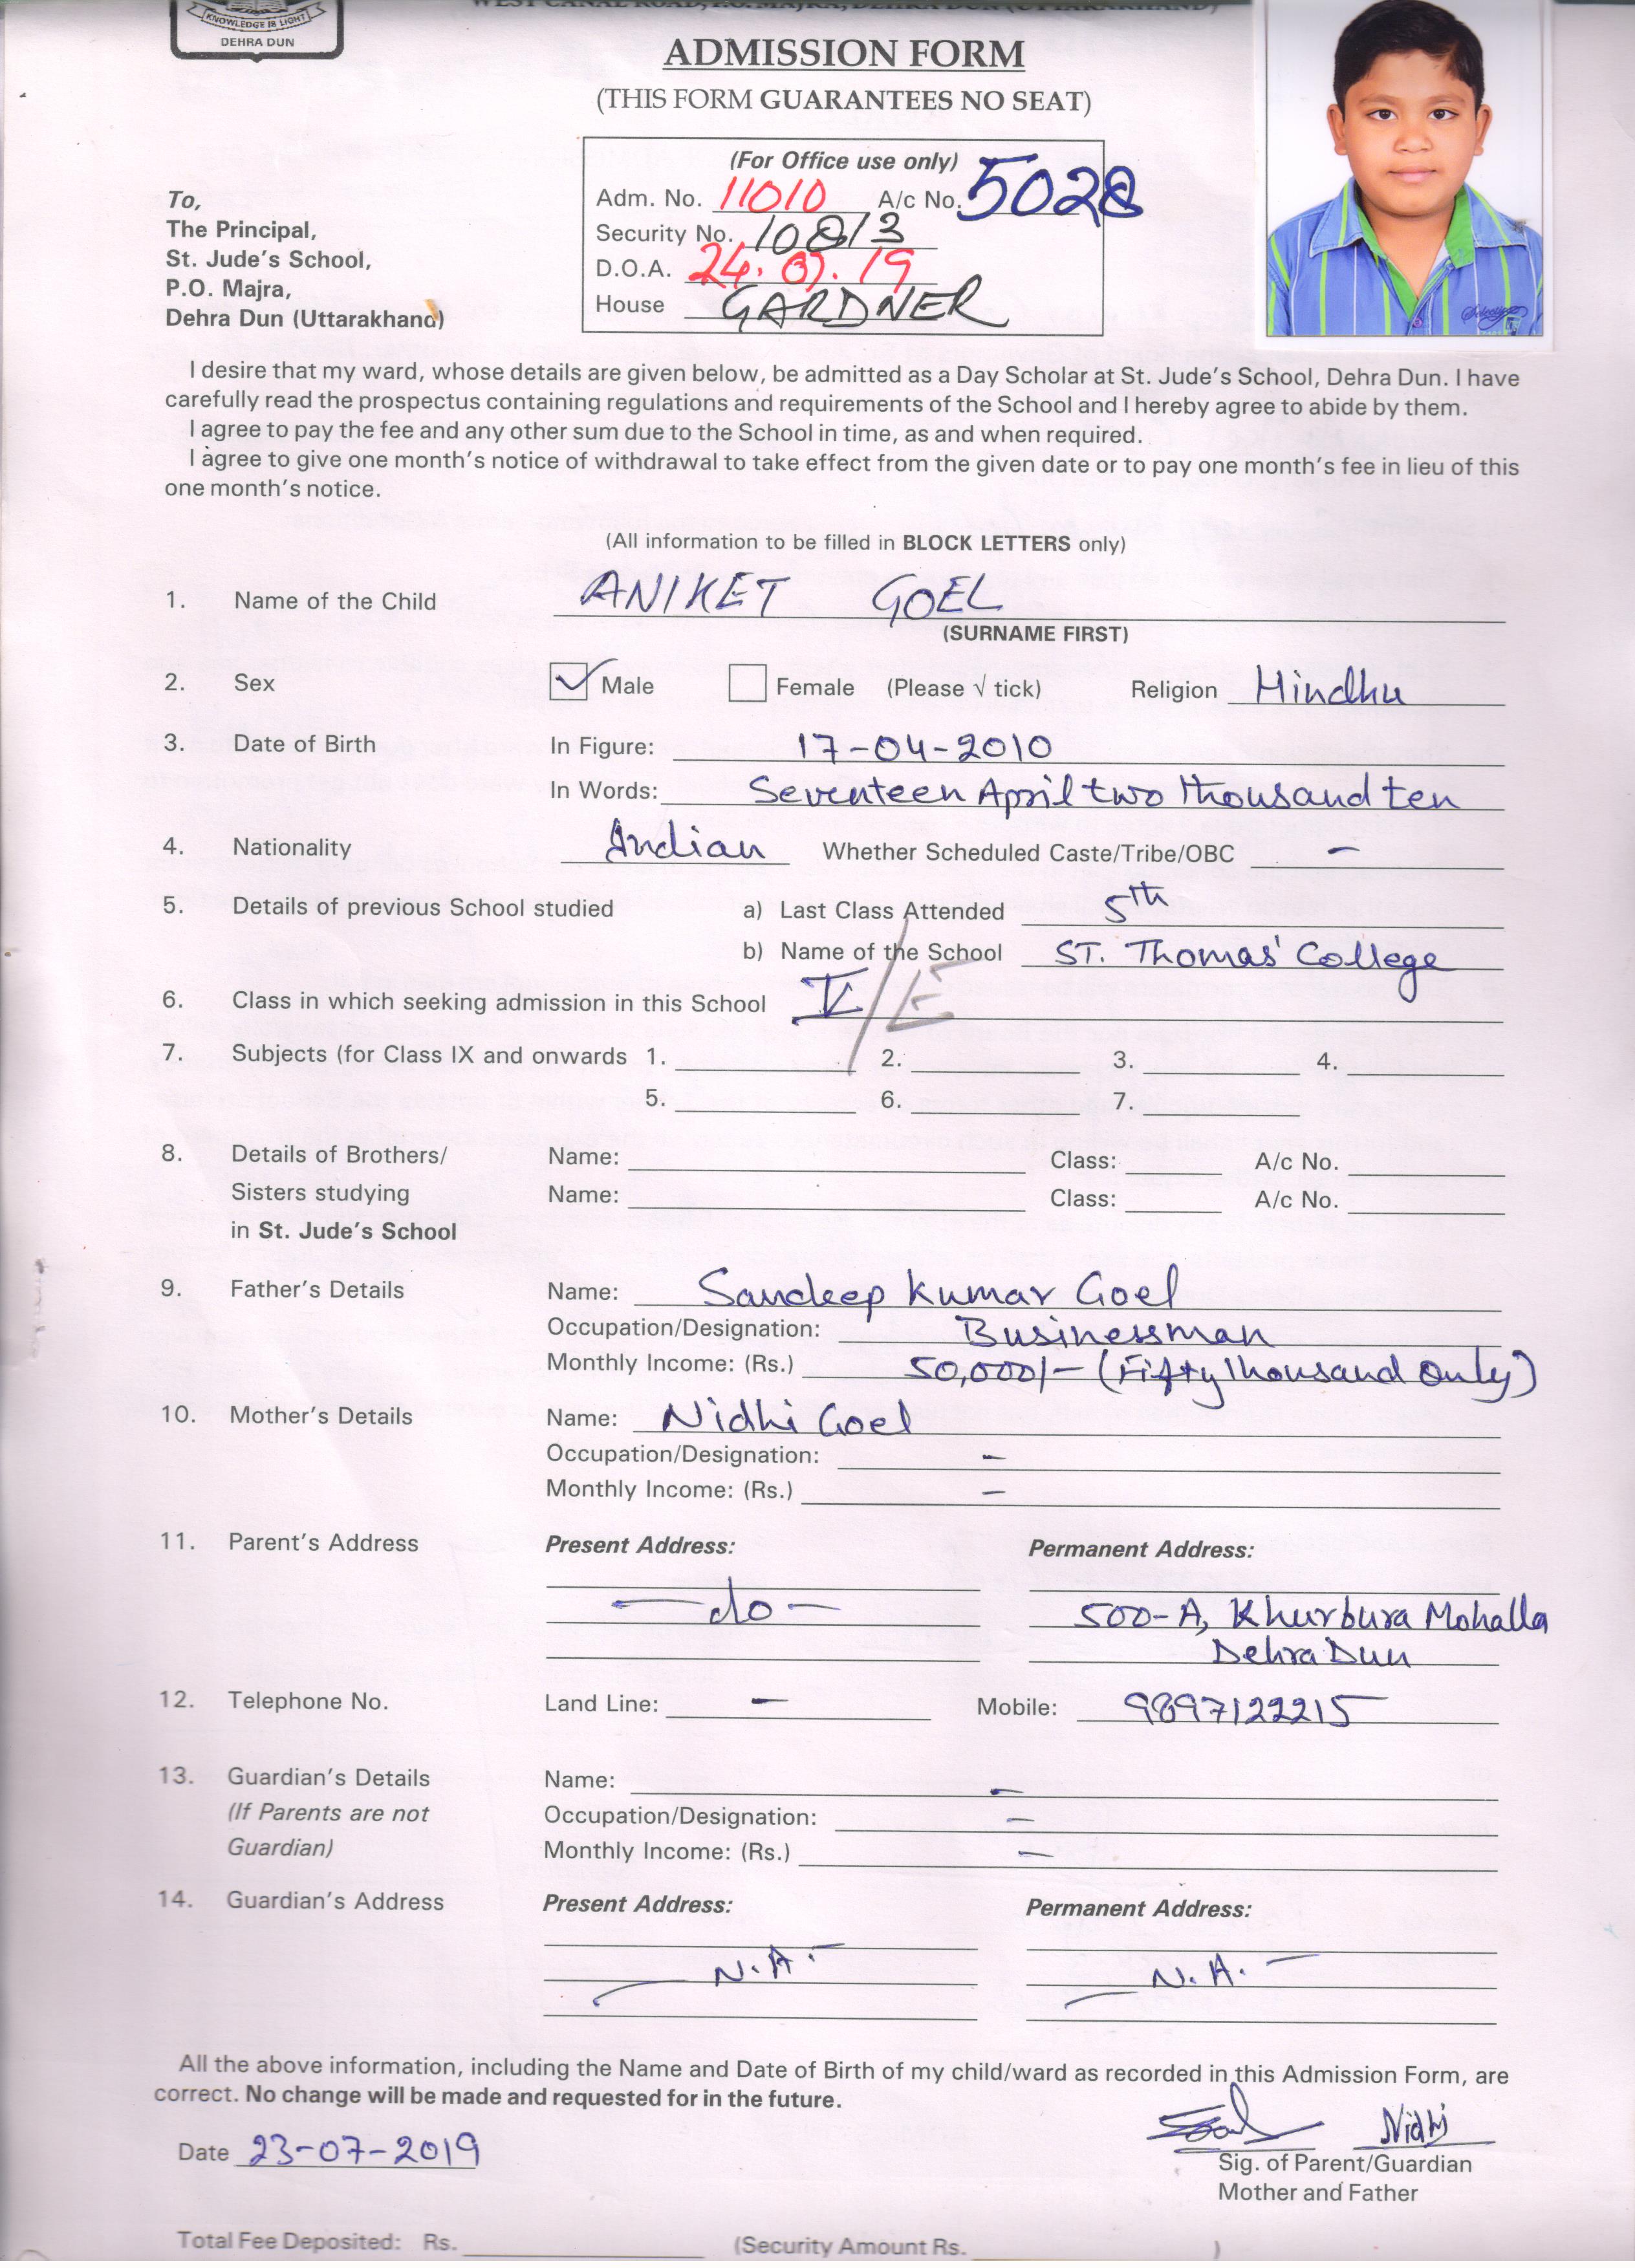 WEST CANAL ROAD, P.O. MAJRA, DEHRA DUN (UTTARAKHAND)
KNOWLEDGE IS LIGHT
DEHRA DUN
ADMISSION FORM
(THIS FORM GUARANTEES NO SEAT)
(For Office use only)
Adm. No. 11010 A/c No. 5028
Security No. 10813
D.O.A. 24. 07. 19
House GARDNER
To,
The Principal,
St. Jude's School,
P.O. Majra,
Dehra Dun (Uttarakhand)
I desire that my ward, whose details are given below, be admitted as a Day Scholar at St. Jude's School, Dehra Dun. I have
carefully read the prospectus containing regulations and requirements of the School and I hereby agree to abide by them.
I agree to pay the fee and any other sum due to the School in time, as and when required.
I agree to give one month's notice of withdrawal to take effect from the given date or to pay one month's fee in lieu of this
one month's notice.
(All information to be filled in BLOCK LETTERS only)
1. Name of the Child ANIKET GOEL
(SURNAME FIRST)
2. Sex Male Female (Please √ tick) Religion Hindhu
3. Date of Birth In Figure: 17-04-2010
In Words: Seventeen April two thousand ten
4. Nationality Indian Whether Scheduled Caste/Tribe/OBC –
5. Details of previous School studied a) Last Class Attended 5th
b) Name of the School ST. Thomas' College
6. Class in which seeking admission in this School V/E
7. Subjects (for Class IX and onwards 1. 2. 3. 4.
5. 6. 7.
8. Details of Brothers/ Name: Class: A/c No.
Sisters studying Name: Class: A/c No.
in St. Jude's School
9. Father's Details Name: Sandeep Kumar Goel
Occupation/Designation: Businessman
Monthly Income: (Rs.) 50,000/- (Fifty Thousand Only)
10. Mother's Details Name: Nidhi Goel
Occupation/Designation: –
Monthly Income: (Rs.) –
11. Parent's Address Present Address: Permanent Address:
—do— 500-A, Khurbura Mohalla
Dehra Dun
12. Telephone No. Land Line: – Mobile: 9897122215
13. Guardian's Details Name: –
(If Parents are not Occupation/Designation: –
Guardian) Monthly Income: (Rs.) –
14. Guardian's Address Present Address: Permanent Address:
— N.A. — — N.A. —
All the above information, including the Name and Date of Birth of my child/ward as recorded in this Admission Form, are
correct. No change will be made and requested for in the future.
Nidhi
Date 23-07-2019
Sig. of Parent/Guardian
Mother and Father
Total Fee Deposited: Rs. (Security Amount Rs. )